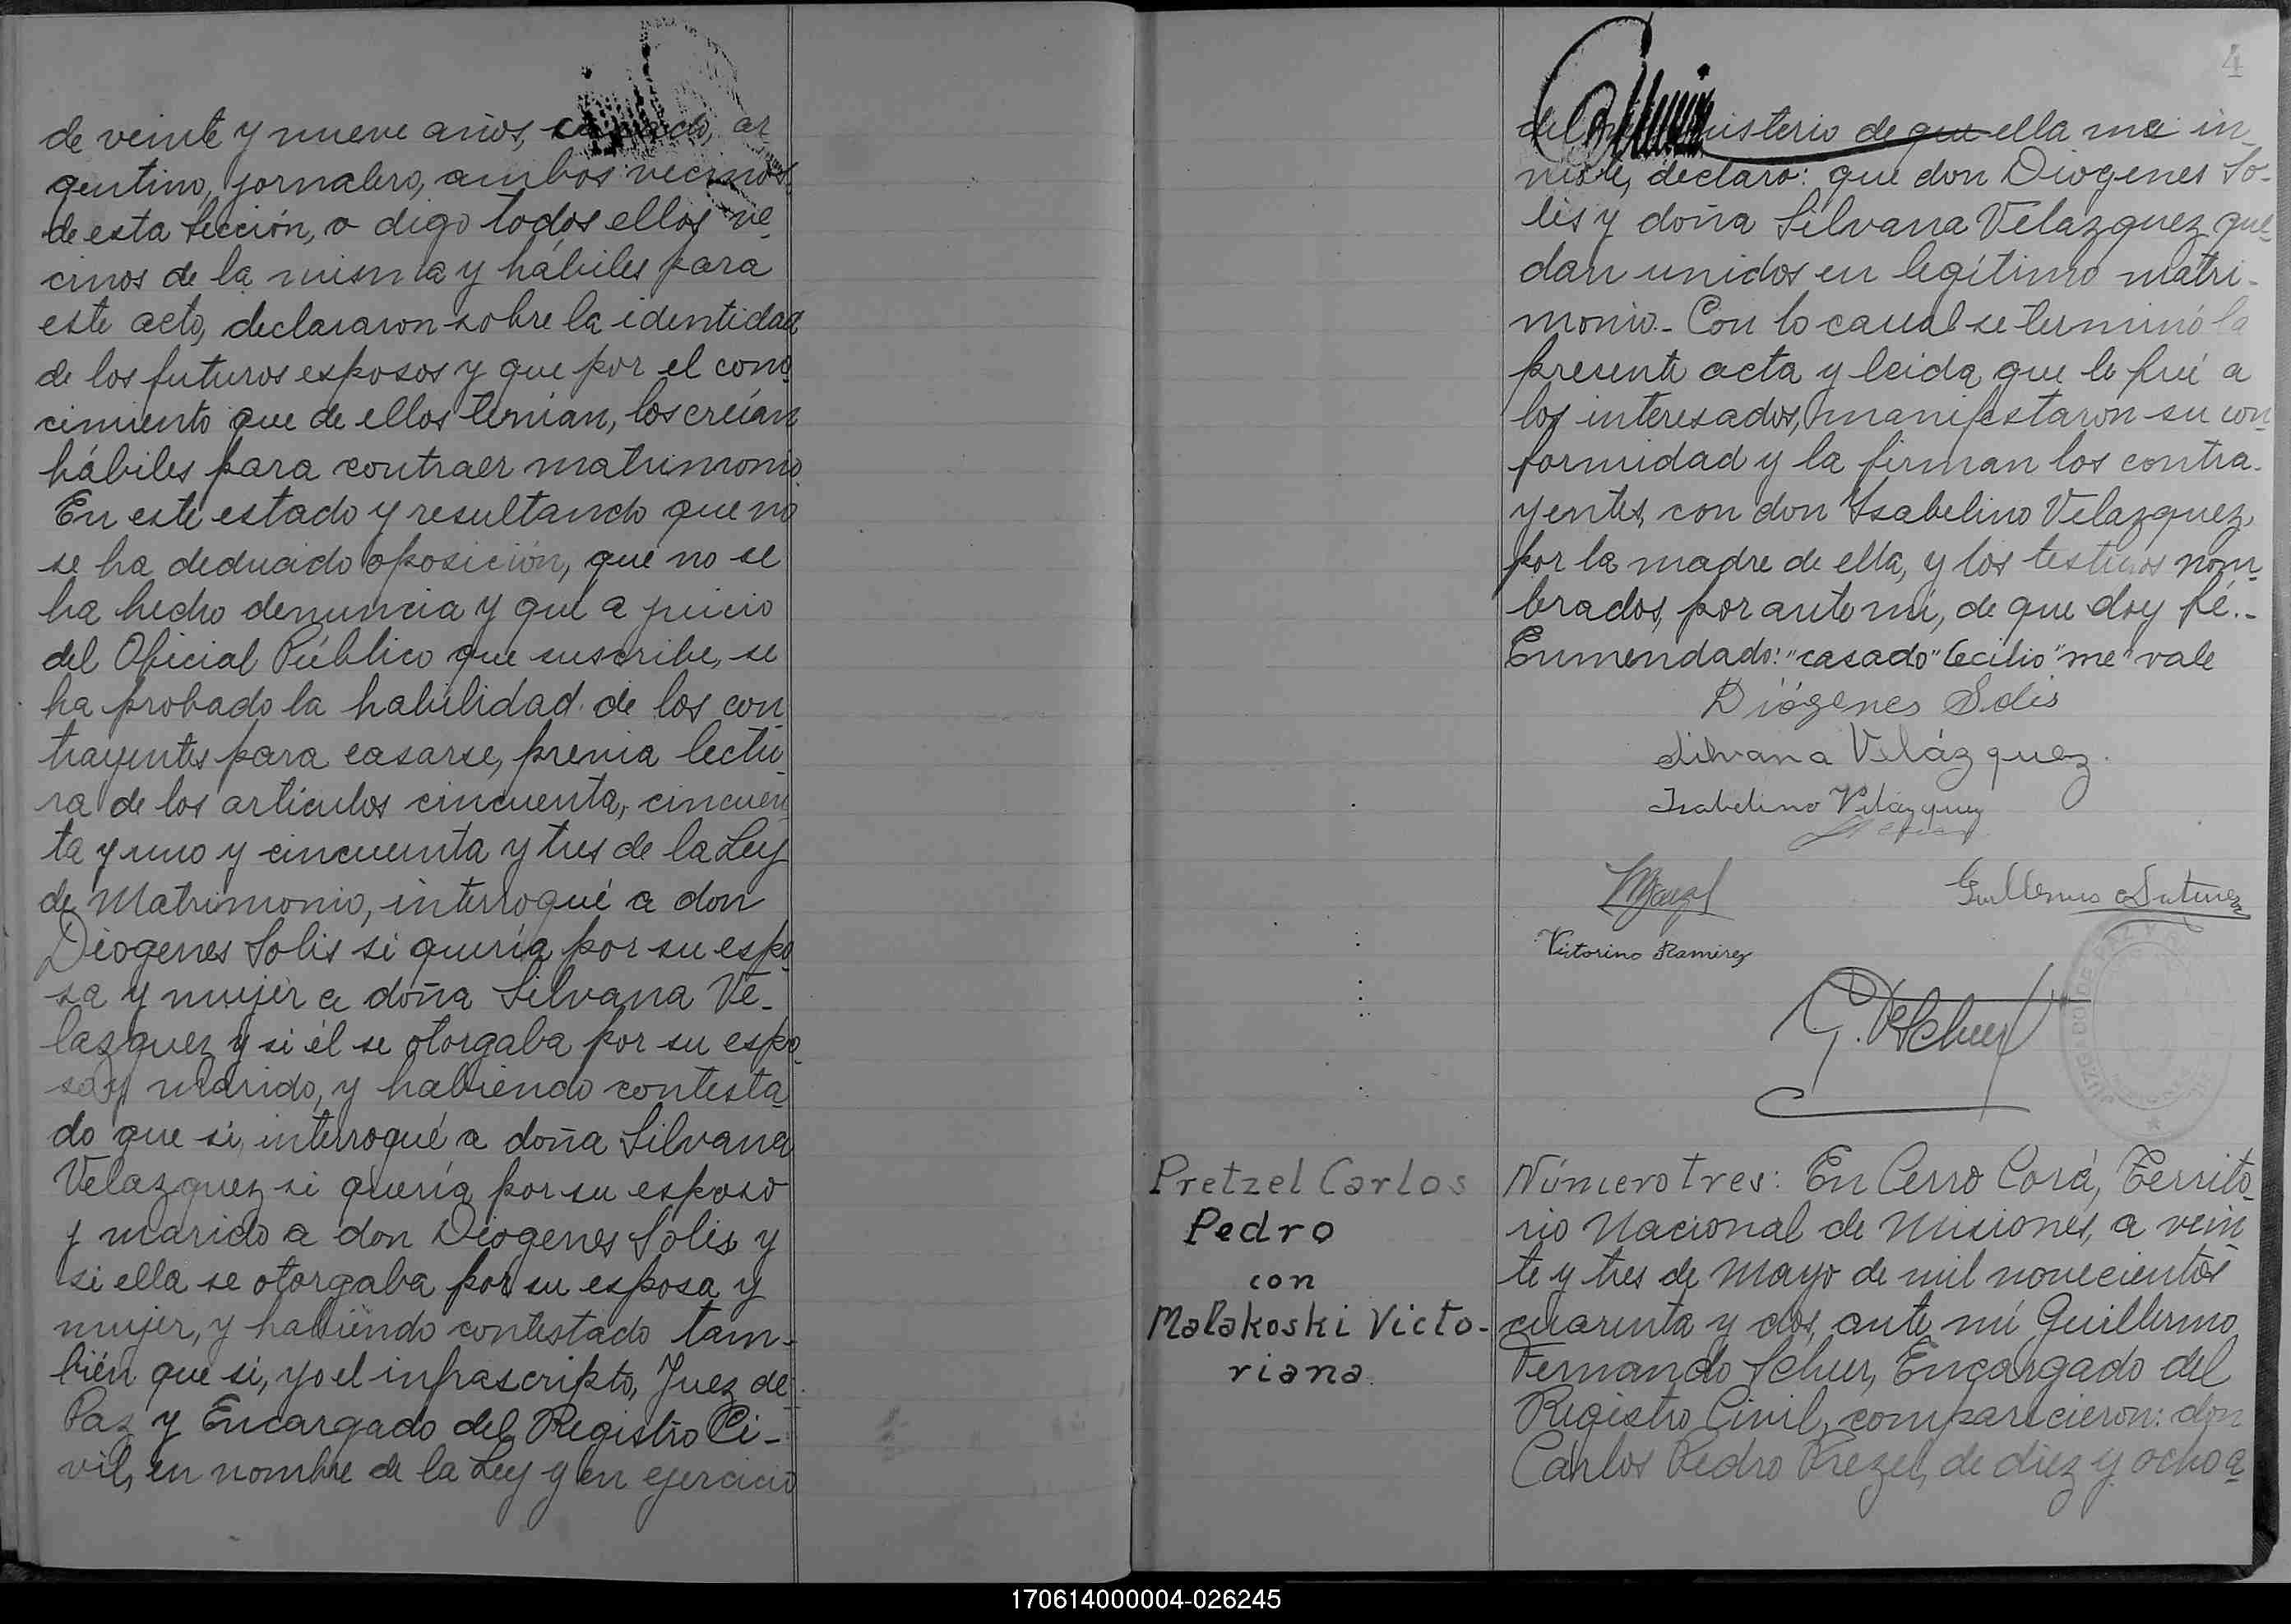 de veinte y nueve años, casado, ar
gentino, jornalero, ambos vecinos
de esta sección, o digo todos ellos ve_
cinos de la misma y hábiles para
este acto, declararon sobre la identidad
de los futuros esposos y que por el cono_
cimiento que de ellos tenían, los creían
hábiles para contraer matrimonio.
En este estado y resultando que no
se ha deducido oposición, que no se
ha hecho denuncia y que a juicio
del Oficial Público que suscribe, se
ha probado la habilidad de los con_
trayentes para casarse, previa lectu_
ra de los artículos cincuenta, cincuen_
ta y uno y cincuenta y tres de la Ley
de Matrimonio, interrogué a don
Diogenes Solis si quería por su espo_
sa y mujer a doña Silvana Ve_
lazquez y si él se otorgaba por su espo_
so y marido, y habiendo contesta_
do que si, interrogué a doña Silvana
Velazquez si quería por su esposo
y marido a don Diogenes Solis y
si ella se otorgaba por su esposa y
mujer, y habiendo contestado tam_
bién que si, yo el infrascripto, Juez de
Paz y Encargado del Registro Ci_
vil, en nombre de la Ley y en ejercicio
4
del ministerio de que ella me in_
viste, declaro: que don Diogenes So_
lis y doña Silvana Velazquez que_
dan unidos en legítimo matri_
monio._ Con lo cual se terminó la
presente acta y leida que le fué a
los interesados, manifestaron su con_
formidad y la firman los contra_
yentes, con don Isabelino Velazquez,
por la madre de ella, y los testigos nom_
brados, por ante mí, de que doy fé._
Enmendado: "casado" Cecilio "me" vale
Diógenes Solis
Silvana Velázquez.
Isabelino Velázquez
Guillermo
Victorino Ramirez
G. F. Scheer
Pretzel Carlos
Pedro
con
Malakoski Victo-
riana
Número tres: En Cerro Corá, Territo_
rio Nacional de Misiones, a vein_
te y tres de Mayo de mil novecientos
cuarenta y dos, ante mí Guillermo
Fernando Scheer, Encargado del
Registro Civil, comparecieron: don
Carlos Pedro Prezel, de diez y ocho a_
170614000004-026245